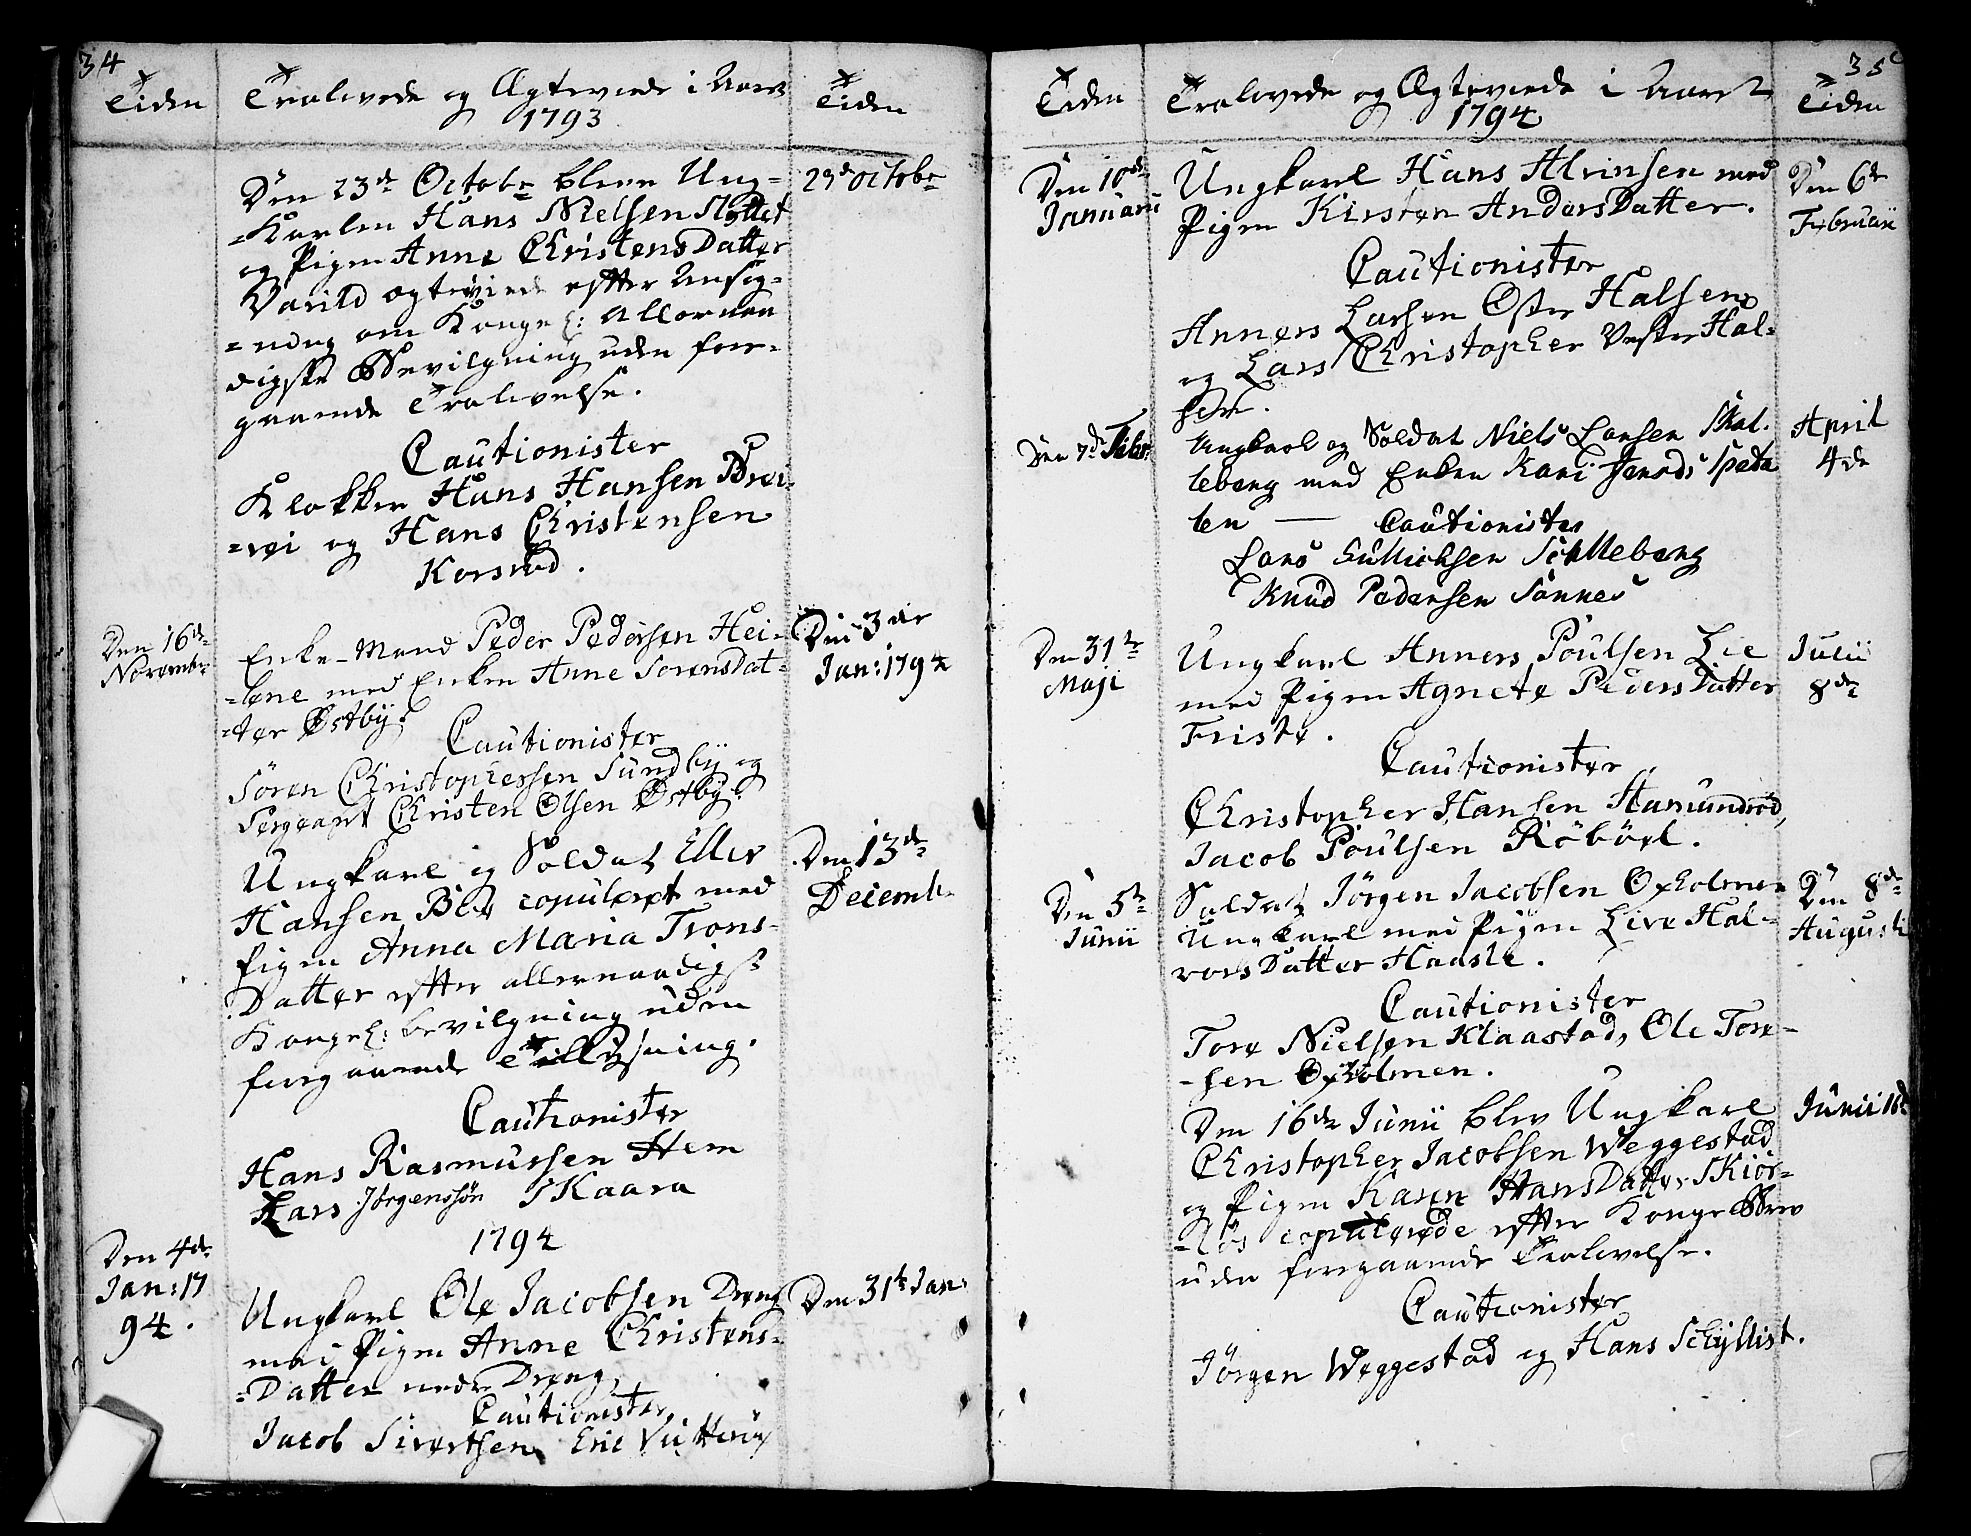 34
Tiden
Trolovede og Ægteviede i Aaret
1793
Tiden
Den 23de Octobr bleve Ung-
=Karlen Hans Nielsen Slottet
og Pigen Anne ChristensDatter
Varild ægteviede efter Ansøg-
=ning om Kongel: Allernaa
digste Bevilgning uden fore-
gaaende Trolovelse.
23d Octobr
Cautionister
Klokker Hans Hansen Brei-
=vei og Hans Christensen
Korsrød.
Den 16de
Novembr
Enke-Mand Peder Pedersen Hei-
-lene med Enken Anne SørensDat-
-ter Østbÿ.
Den 3die
Jan: 1794
Cautionister
Søren Christophersen Sundbÿ og
Sergeant Christen Olsen Østbÿ.
Ungkarl og Soldat Ellev
Hansen Blix copuleret med
Pigen Anna Maria Trons-
Datter efter allernaadigst
Kongel: bevilgning uden
foregaaende Tillysning.
Den 13de
Decemb.
Cautionister
Hans Rasmussen Hem
Lars Jörgenssön Skaara
1794
Den 4de
Jan: 17
94.
Ungkarl Ole Jacobsen Dreng
med Pigen Anne Christens-
=Datter nedre Dreng
Den 31te Jan:
Cautionister
Jacob Sivertsen Eric
35
Tiden
Trolovede og Ægteviede i Aaret
1794
Tiden
Den 10de
Januarii
Ungkarl Hans Alvinsen med
Pigen Kirsten AndersDatter.
Den 6te
Februarii
Cautionister
Anners Larsen Øster Halsen
og Lars Christopher Vester Hal-
sen.
Den 7de Febr:
Ungkarl og Soldat Niels Larsen Skal-
leberg med Enken Kari
len — Cautionister
April
4de
Lars Gullichsen Schalleberg
Knud Pedersen Sannes
Den 31te
Maji
Ungkarl Anners Poulsen Lie
med Pigen Agnete PedersDatter
Friste.
Julii
8de
Cautionister
Christopher Hansen Hamundrød,
Jacob Poulsen Röböel.
Den 5te
Junii
Soldat Jörgen Jacobsen Oxholmen
Ungkarl med Pigen Live Hal-
vorsDatter Haasle.
Den 8de
Augusti
Cautionister
Tore Nielsen Klaastad, Ole Tore-
-sen Oxholmen.
Den 16de Junii blev Ungkarl
Christopher Jacobsen Weggestad
og Pigen Karen HansDatter Skiör-
-lös copulerede efter Konge Brev
uden foregaaende Trolovelse.
Junii 16de
Cautionister
Jörgen Weggestad og Hans Schÿllist.